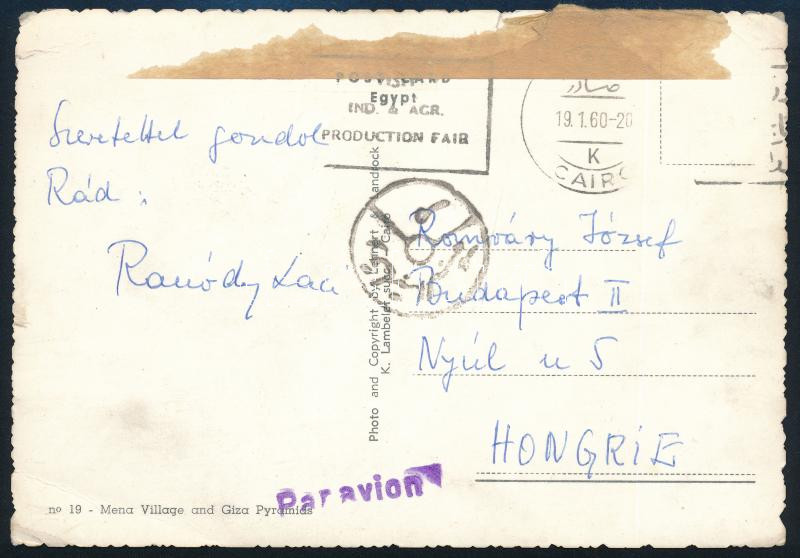 POSTCARD
VISIT
Egypt
IND. & AGR.
PRODUCTION FAIR
صادر
19.1.60-20
K
CAIRO
Szeretettel gondol
Rád:
Ranódy Laci
Photo and Copyright by Lehnert & Landrock
K. Lambelet succ. Cairo
Romváry József
Budapest II
Nyúl u 5
HONGRIE
Par avion
nº 19 - Mena Village and Giza Pyramids